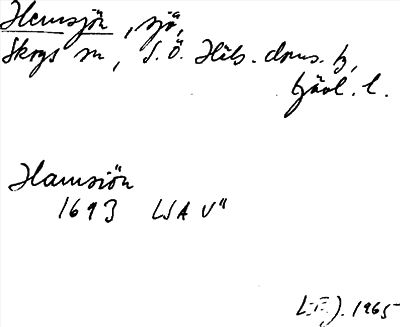 Hemsjön, sjö,
Skogs sn, S. Ö. Häls. doms. h,
Gävl. l.
Hamsiön
1693 LSA V"
1965